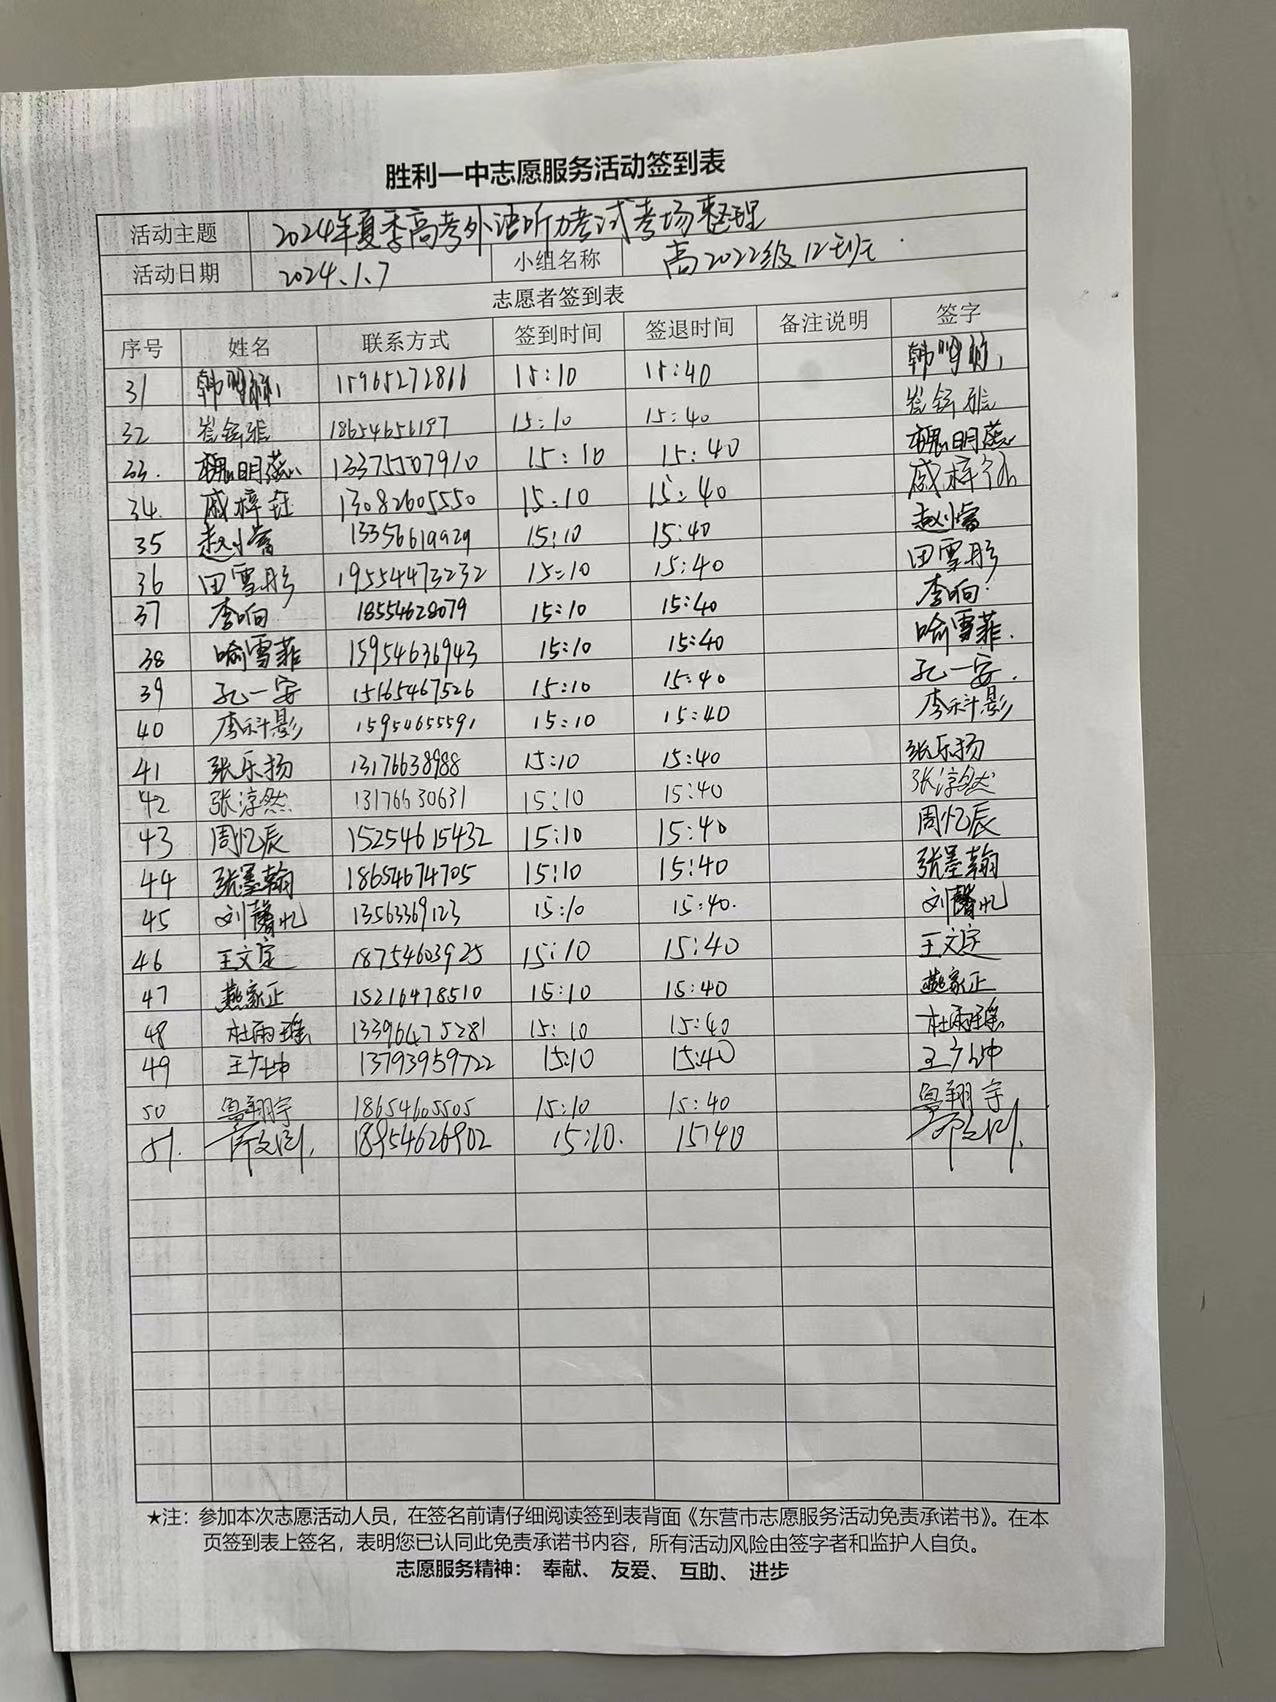 胜利一中志愿服务活动签到表
活动主题 2024年夏季高考外语听力考试考场整理
活动日期 2024.1.7 小组名称 高2022级12班
志愿者签到表
序号 姓名 联系方式 签到时间 签退时间 备注说明 签字
31 韩 15965272866 15:10 15:40 韩
32 崔铎雅 18654656197 15:10 15:40 崔铎雅
33. 槐明蕊 13375507910 15:10 15:40 槐明蕊
34 戚梓钰 13082605550 15:10 15:40 戚梓钰
35 赵小 13356619929 15:10 15:40 赵小
36 田雪彤 19554473232 15:10 15:40 田雪彤
37 李响 18554628079 15:10 15:40 李响
38 喻雪菲 15954636943 15:10 15:40 喻雪菲.
39 孔一安 15165467526 15:10 15:40 孔一安.
40 李科影 15954655591 15:10 15:40 李科影
41 张乐扬 13176638988 15:10 15:40 张乐扬
42 张淳然 13176630631 15:10 15:40 张淳然
43 周忆辰 15254615432 15:10 15:40 周忆辰
44 张墨翰 18654674705 15:10 15:40 张墨翰
45 刘馨忆 13563369123 15:10 15:40. 刘馨忆
46 王文定 18754603925 15:10 15:40 王文定
47 燕家正 15216478510 15:10 15:40 燕家正
48 杜雨瑶 13396475281 15:10 15:40 杜雨瑶
49 王广坤 13793959722 15:10 15:40 王广坤
50 翔宇 18654605505 15:10 15:40 翔宇
51. 18954626902 15:10. 15:40
★注：参加本次志愿活动人员，在签名前请仔细阅读签到表背面《东营市志愿服务活动免责承诺书》。在本
页签到表上签名，表明您已认同此免责承诺书内容，所有活动风险由签字者和监护人自负。
志愿服务精神： 奉献、 友爱、 互助、 进步